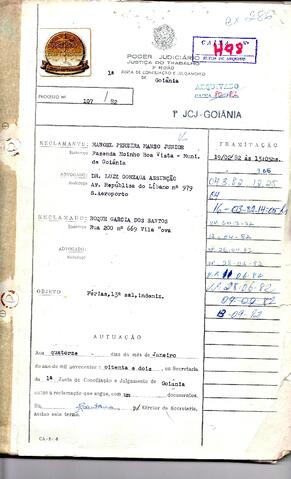 CX 286
CAIXA Nº
H98
PODER JUDICIÁRIO
JUSTIÇA DO TRABALHO
3ª REGIÃO
1ª JUNTA DE CONCILIAÇÃO E JULGAMENTO
DE Goiânia
PROCESSO Nº 107 / 82
1ª JCJ-GOIÂNIA
RECLAMANTE: MANOEL PEREIRA MANSO JUNIOR
Endereço Fazenda Moinho Boa Vista - Muni.
da Goiânia
ADVOGADO: DR. LUIZ GONZAGA ASSUNÇÃO
Endereço Av. República do Líbano nº 979
S.Aeroporto
RECLAMADO: ROQUE GARCIA DOS SANTOS
Endereço Rua 200 nº 669 Vila Nova
ADVOGADO:
Endereço
OBJETO Férias, 13º sal, indeniz.
TRAMITAÇÃO
19/02/82 às 13:05hs.
04.3.82
28-06-82
09-09-82
AUTUAÇÃO
Aos quatorze dias do mês de janeiro
do ano de mil novecentos e oitenta e dois, na Secretaria
da 1ª Junta de Conciliação e Julgamento de Goiânia
autuo a reclamação que segue, com um documentos.
Eu p/ Diretor de Secretaria,
assino este termo.